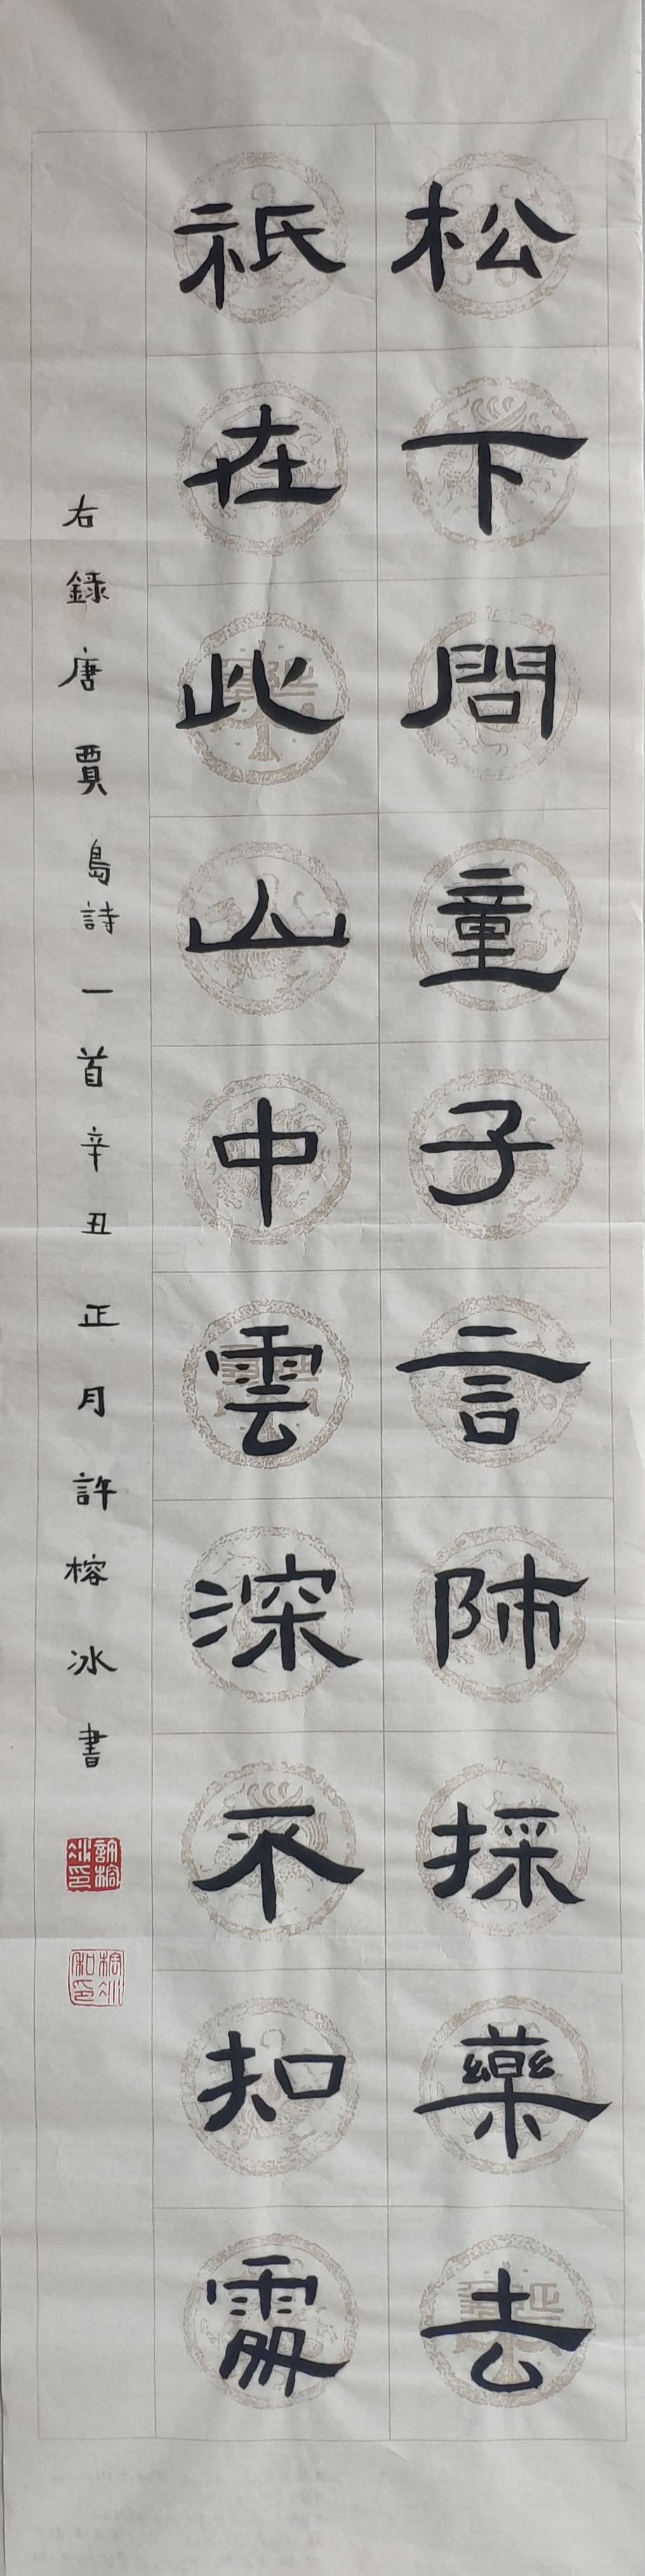 松下問童子言師採藥去
祇在此山中雲深不知處
右錄唐賈島詩一首辛丑正月許榕冰書
許榕冰印